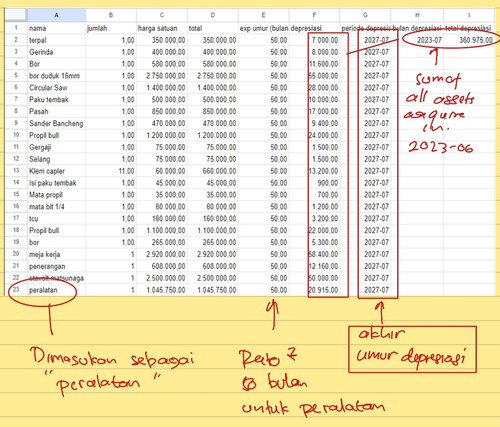 A B C D E F G H I
1 nama jumlah harga satuan total exp umur (bulan depresiasi periode depresi bulan depresiasi total depresiasi
2 terpal 1,00 350.000,00 350.000,00 50,00 7.000,00 2027-07 2023-07 360.975,00
3 Gerinda 1,00 400.000,00 400.000,00 50,00 8.000,00 2027-07
4 Bor 1,00 580.000,00 580.000,00 50,00 11.600,00 2027-07
5 bor duduk 16mm 1,00 2.750.000,00 2.750.000,00 50,00 55.000,00 2027-07
6 Circular Saw 1,00 1.400.000,00 1.400.000,00 50,00 28.000,00 2027-07
7 Paku tembak 1,00 500.000,00 500.000,00 50,00 10.000,00 2027-07
8 Pasah 1,00 850.000,00 850.000,00 50,00 17.000,00 2027-07
9 Sander Bancheng 1,00 470.000,00 470.000,00 50,00 9.400,00 2027-07
10 Propil bull 1,00 1.200.000,00 1.200.000,00 50,00 24.000,00 2027-07
11 Gergaji 1,00 75.000,00 75.000,00 50,00 1.500,00 2027-07
12 Selang 1,00 75.000,00 75.000,00 50,00 1.500,00 2027-07
13 Klem capler 11,00 60.000,00 660.000,00 50,00 13.200,00 2027-07
14 Isi paku tembak 1,00 45.000,00 45.000,00 50,00 900,00 2027-07
15 Mata propil 1,00 35.000,00 35.000,00 50,00 700,00 2027-07
16 mata bit 1/4 1,00 60.000,00 60.000,00 50,00 1.200,00 2027-07
17 tcu 1,00 160.000,00 160.000,00 50,00 3.200,00 2027-07
18 Propil bull 1,00 1.100.000,00 1.100.000,00 50,00 22.000,00 2027-07
19 bor 1,00 265.000,00 265.000,00 50,00 5.300,00 2027-07
20 meja kerja 1 2.920.000,00 2.920.000,00 50,00 58.400,00 2027-07
21 penerangan 1 608.000,00 608.000,00 50,00 12.160,00 2027-07
22 stavolt matsunaga 1 2.500.000,00 2.500.000,00 50,00 50.000,00 2027-07
23 peralatan 1 1.045.750,00 1.045.750,00 50,00 20.915,00 2027-07
sum of
all assets
in.
2023-06
Dimasukan sebagai
"peralatan"
50 bulan
untuk peralatan
akhir
umur depresiasi